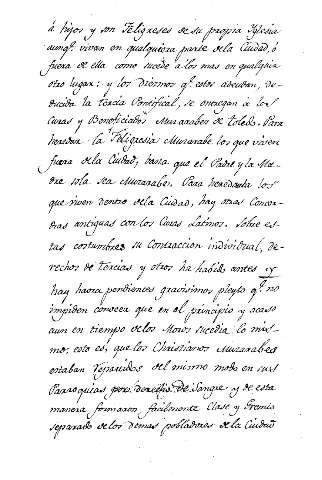 á hijos y son Feligreses de su propria Iglesia
aunq.e vivan en qualquiera parte dela Ciudad, ó
fuera de ella como sucede á los mas en qualquia
otro lugar: y los Diezmos q.e estos adeudan, de-
ducida la tercia Pontifical, se entregan á los
Curas y Beneficiados Muzarabes de Toledo. Para
heredar la Feligresia Muzarabe los que viven
fuera dela Ciudad, basta que el Padre y la Ma-
dre sola sea Muzarabe. Para heredarla los
que viven dentro dela Ciudad, hay otras Concor-
dias antiguas con los Curas Latinos. Sobre es-
tas costumbres su Contraccion individual, de-
rechos de tercias y otros ha habido antes y
hay haora pendientes gravisimos pleytos q.e no
impiden conocer que en el principio y acaso
aun en tiempo delos Moros sucedia lo mis-
mo; esto es, que los Christianos Muzarabes
estaban repartidos del mismo modo en sus
Parroquias por derecho de Sangre y de esta
manera formaron facilmente Clase y Gremio
separado delos demas pobladores dela Ciudad